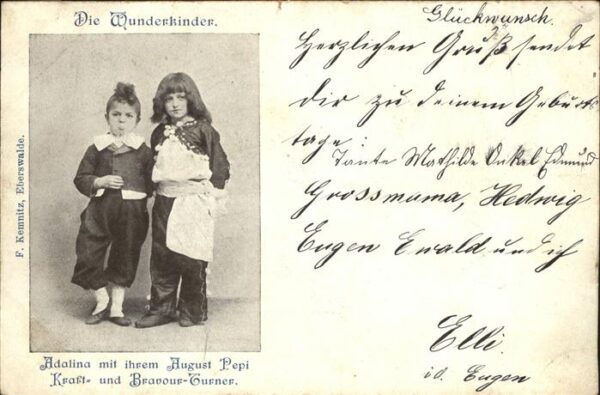 Die Wunderkinder.
F. Kemnitz, Eberswalde.
Adalina mit ihrem August Pepi
Kraft- und Bravour-Turner.
Glückwunsch.
Herzlichen Gruß sendet
dir zu deinem Geburts
tage:
Tante Mathilde Onkel Edmund
Grossmama, Hedwig
Eugen Ewald und ich
Elli.
Eugen